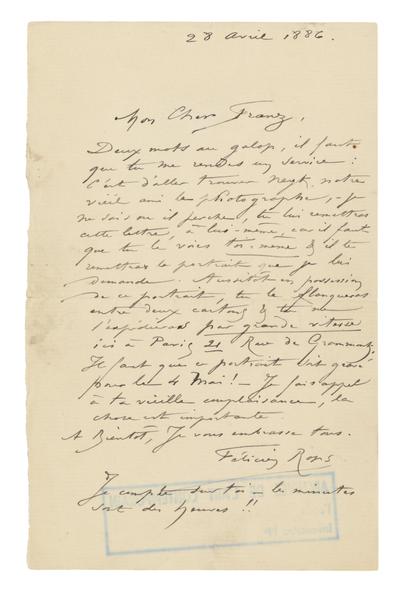 28 Avril 1886.
Mon Cher Franz,
Deux mots au galop, il faut
que tu me rendes un service :
C'est d'aller trouver Neyt, notre
vieil ami le photographe, je
ne sais où il perche, tu lui remettras
cette lettre, à lui-même, car il faut
que tu le voies toi-même & il te
remettra le portrait que je lui
demande. Aussitôt en possession
de ce portrait, tu le flanqueras
entre deux cartons & tu me
l'expédieras par grande vitesse
ici à Paris 21 Rue de Grammont,
Il faut que ce portrait soit gravé
pour le 4 Mai ! – Je fais appel
à ta vieille complaisance, la
chose est importante
A Bientôt, Je vous embrasse tous.
Félicien Rops
Je compte sur toi – les minutes
sont des heures !!